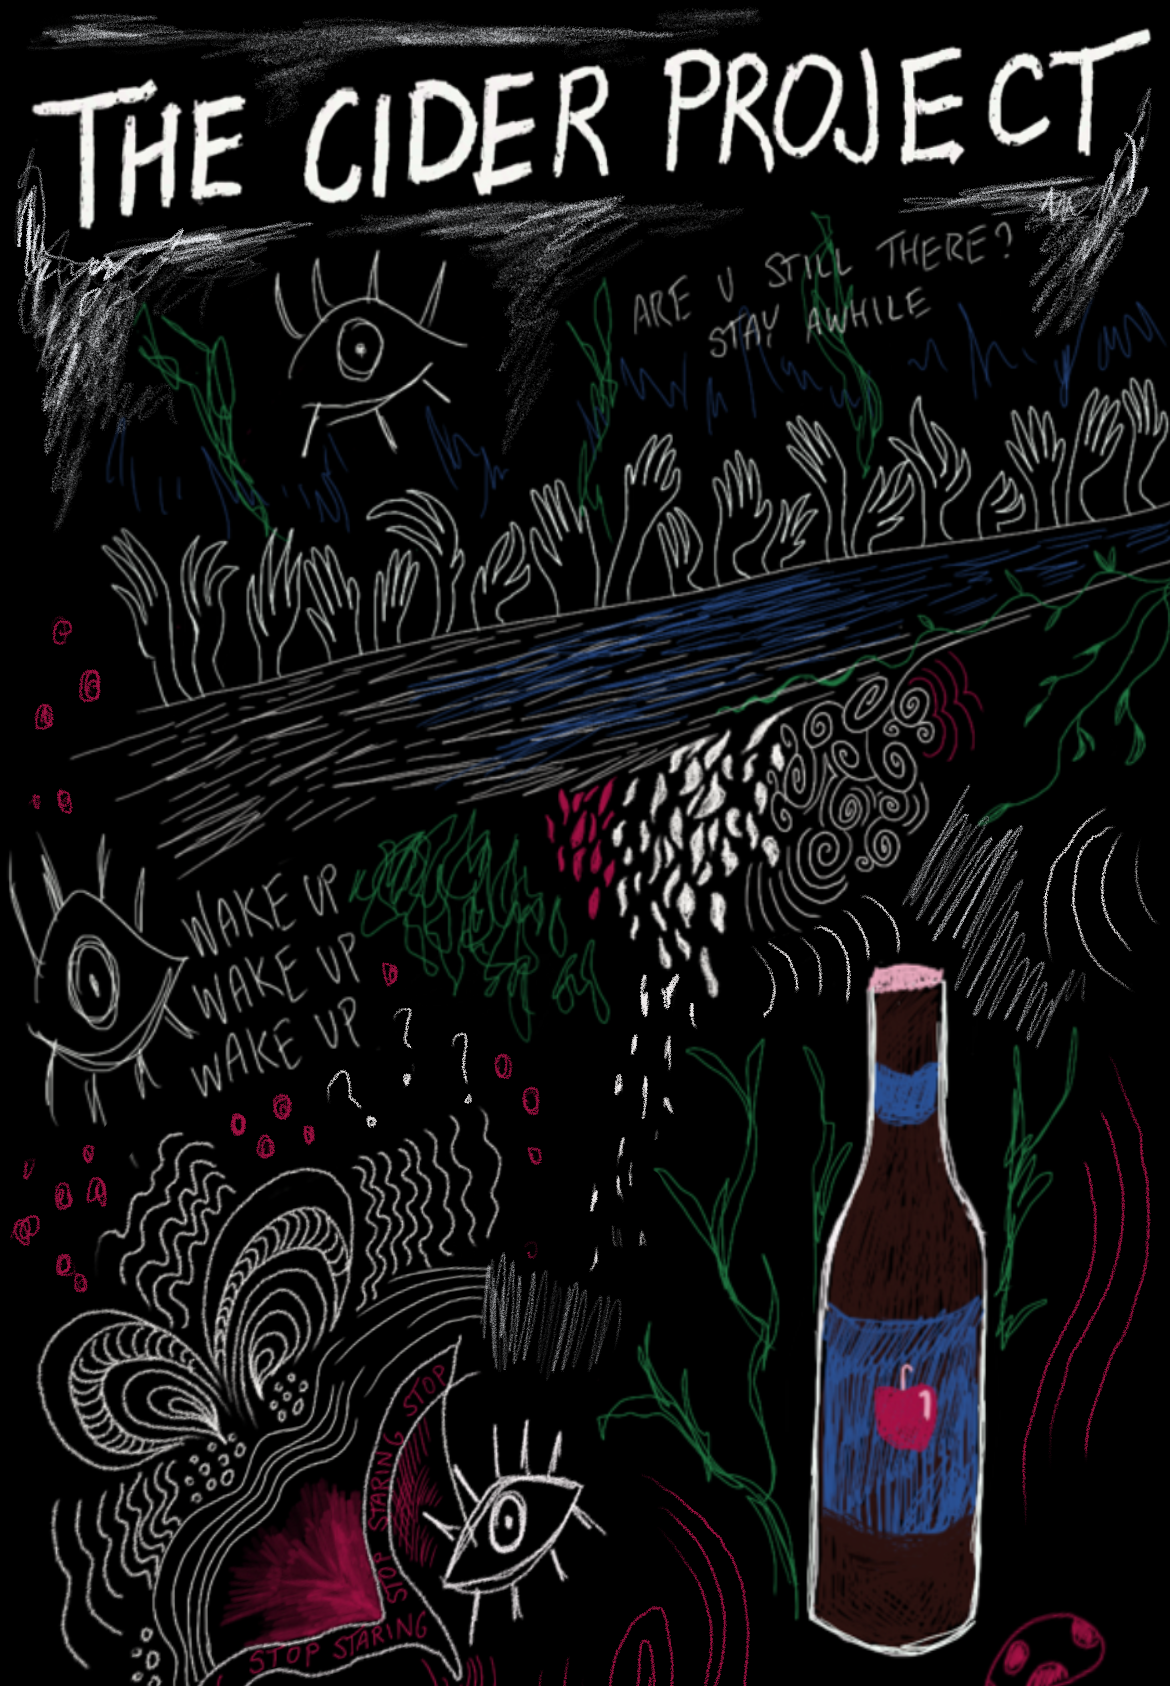 THE CIDER PROJECT
ARE U STILL THERE?
STAY AWHILE
WAKE UP
WAKE UP
WAKE UP
? ? ?
STOP STARING STOP
STOP STARING